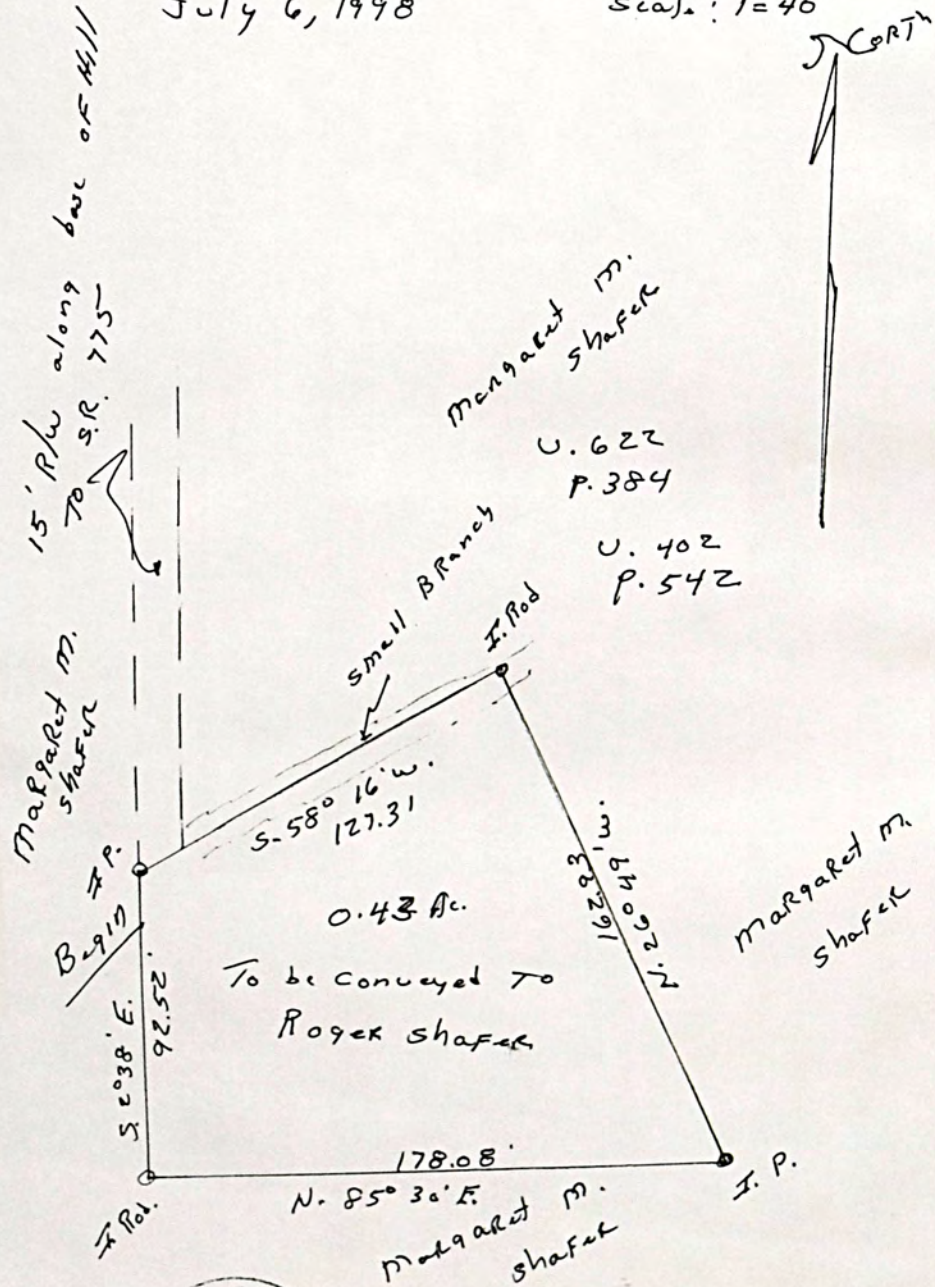 July 6, 1998
Scale: 1=40
NORTh
15' R/w along base OF Hill
TO S.R. 775
Margaret M.
Shafer
U. 622
P. 384
U. 402
P. 542
Small BRanch
I. Rod
Margaret M.
Shafer
S. 58° 16' W.
127.31
I P.
Begin
0.43 Ac.
To be conveyed To
Roger Shafer
S. 2° 38' E.
92.52'
162.23
N. 26° 49' W.
Margaret M.
Shafer
178.08'
N. 85° 30' E.
I Rod.
I. P.
Margaret M.
Shafer